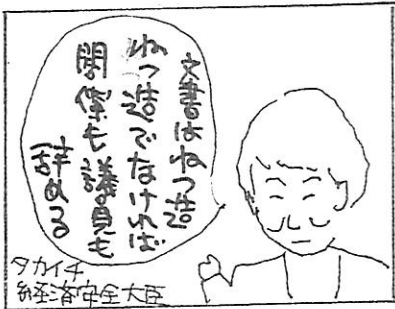 文書はねつ造
ねつ造でなければ
閣僚も議員も
辞める
タカイチ
経済安全大臣